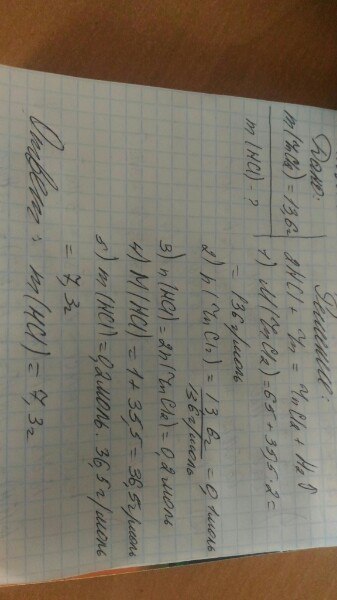 Дано:
m(ZnCl2) = 13,6г
m(HCl) - ?
Решение:
2HCl + Zn = ZnCl2 + H2↑
1) M(ZnCl2) = 65 + 35,5 · 2 =
= 136 г/моль
2) n(ZnCl2) = 13,6г / 136 г/моль = 0,1 моль
3) n(HCl) = 2n(ZnCl2) = 0,2 моль
4) M(HCl) = 1 + 35,5 = 36,5 г/моль
5) m(HCl) = 0,2 моль · 36,5 г/моль
= 7,3г
Ответ: m(HCl) = 7,3г